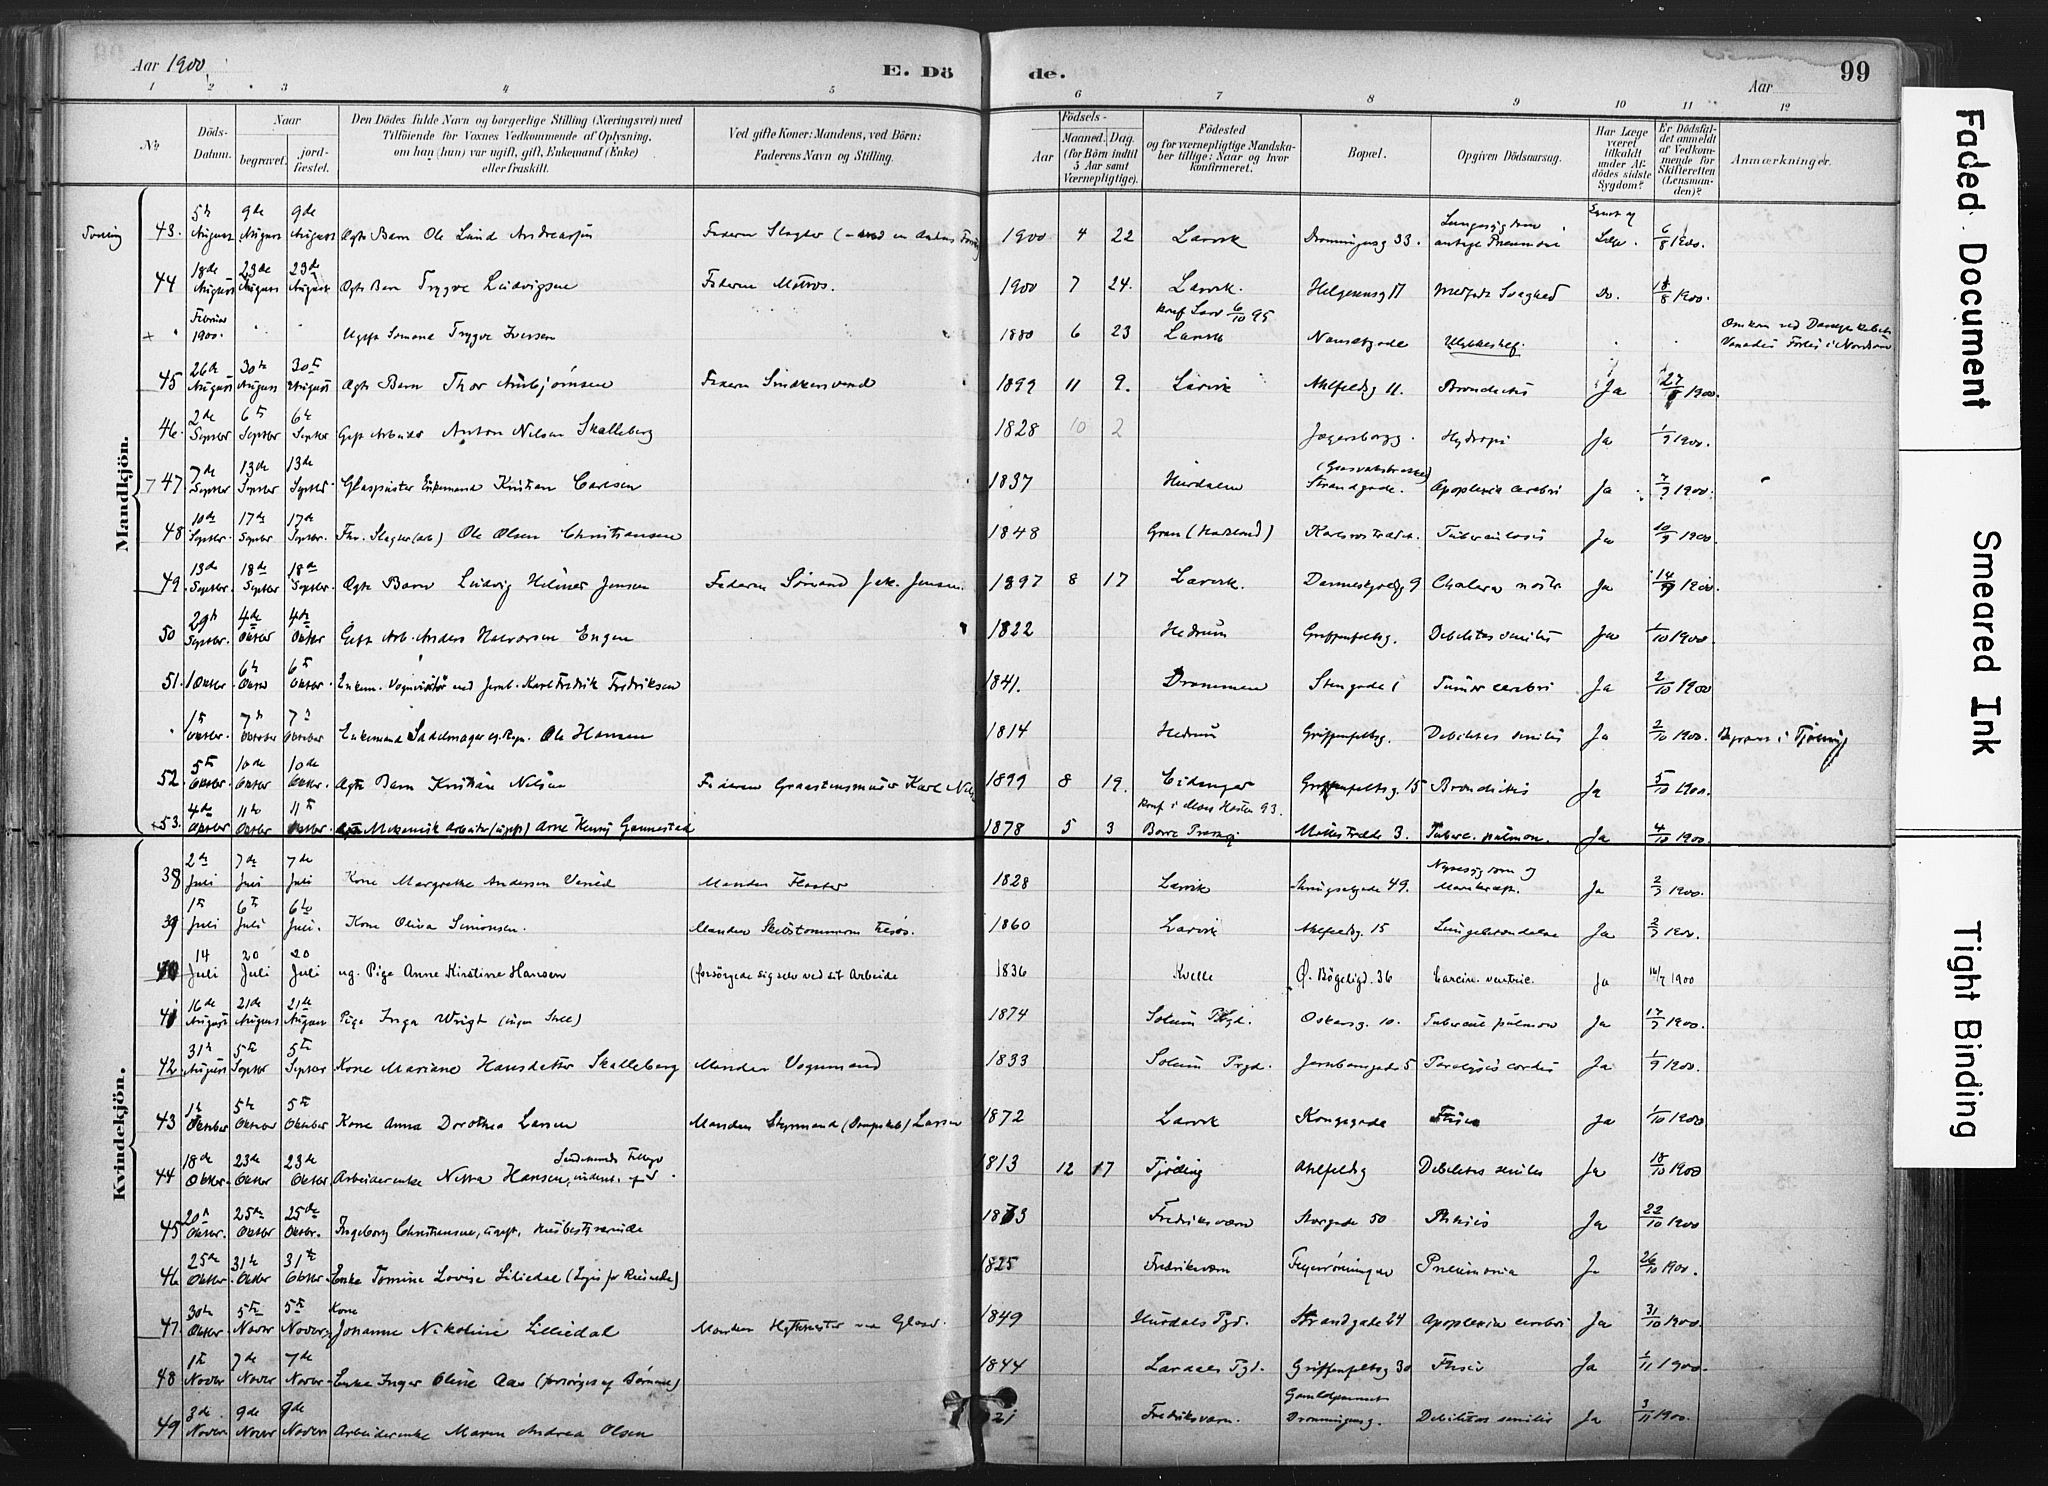 Aar 1900.
E. Dö
de.
Aar
99
1 2 3 4 5 6 7 8 9 10 11 12
No
Döds-Datum.
Naar
begravet.
jord-fæstet.
Den Dödes fulde Navn og borgerlige Stilling (Næringsvei) med
Tilföiende for Voxnes Vedkommende af Oplysning,
om han (hun) var ugift, gift, Enkemand (Enke)
eller fraskilt.
Ved gifte Koner: Mandens, ved Börn:
Faderens Navn og Stilling.
Födsels-
Aar
Maaned. Dag.
(for Börn indtil
5 Aar samt
Værnepligtige).
Födested
og for værnepligtige Mandska-
ber tillige: Naar og hvor
konfirmeret.
Bopæl.
Opgiven Dödsaarsag.
Har Læge
været
tilkaldt
under Af-
dödes sidste
Sygdom?
Er Dödsfal-
det anmeldt
af Vedkom-
mende for
Skifteretten
(Lensman-
den)?
Anmærkninger.
Mandkjön.
43. 5te August 9de August 9de August Ægte Barn Ole Lund Andreassen Faderen Slagter 1900 4 22 Larvik Dronningensg 33. Læge. 6/8 1900.
44 18de August 23de August 23de August Ægte Barn Trygve Ludvigsen Faderen Matros. 1900 7 24. Larvik. Helgesensg 17 Medfødt Svaghed Do. 18/8 1900.
Februar 1900. Ugift Sømand Trygve Iversen 1880 6 23 konf Larv 6/10 95 Larvik Nansetgade Ulykkestilf.
45 26te August 30te August 30te August Ægte Barn Thor Asbjørnsen Faderen 1899 11 9. Larvik Ahlfeldtsg 11. Bronchitis Ja 27/8 1900.
46. 2de Septbr 6te Septbr 6te Septbr Gift Arbeider Anton Nilsen Skalleberg 1828 10 2 Jegersborgg. Hydrops Ja 1/9 1900.
47. 7de Septbr 13de Septbr 13de Septbr Glaspuster Enkemand Kristian Carlsen 1837 Hurdalen Strandgade. Apoplexia cerebri Ja 7/9 1900.
48 10de Septbr. 17de Septbr 17de Septbr. Fhv. Slagter (arb) Ole Olsen Christiansen 1848 Gran (Hadeland) Tuberculosis Ja 10/9 1900.
49. 13de Septbr. 18de Septbr 18de Septbr. Ægte Barn Ludvig Hilmar Jensen Faderen Sømand Jak. Jensen. 1897 8 17 Larvik. Danneskjoldg 9 Cholera nostr Ja 14/9 1900.
50 29te Septbr. 4de Oktbr 4de Oktbr Gift Arb. Anders Halvorsen Engen 1822 Hedrum Griffenfeldtsg. Debilitas senilis Ja 1/10 1900
51. 1 Oktbr. 6te Oktbr 6te Oktbr. Enkem. Vognvisitør ved Jernb. Karl Fredrik Fredriksen 1841. Drammen Stengade 1 Tumor cerebri Ja 2/10 1900
1te Oktbr. 7de Oktober 7de Oktober Enkemand Sadelmager Ole Hansen 1814 Hedrum Griffenfeltsg. Debilitas senilis Ja 2/10 1900. Begravet i Tjølling
52. 5te Oktbr. 10de Oktbr 10de Oktbr. Ægte Barn Kristian Nilsen Faderen Graastensmurer Karl Nilsen 1899 8 19. Eidanger Griffenfeltsg. 15 Bronchitis Ja 5/10 1900.
53. 4de Oktbr 11te Oktbr 11te Oktbr. Mekanisk Arbeider (ugift) Arne Henry Gonnestad 1878 5 3 Borre Møllestræde 3. Tuberc. pulmon. Ja 4/10 1900
Kvindekjön.
38 2de Juli 7de Juli 7de Juli Kone Margrethe Andersen Manden Fløtter 1828 Larvik Kongegade 49. Nyresygdom og Ja 2/7 1900.
39 1te Juli 6te Juli 6te Juli. Kone Oliva Simonsen. 1860 Larvik Ahlfeldtg. 15 Lungebetændelse Ja 2/7 1900.
40 14 Juli 20 Juli 20 Juli ug. Pige Anne Kirstine Hansen (forsörgede sig selv ved sit Arbeide 1836 Kvelle Ø. Bögeligd. 36 Carcin. ventric. Ja 16/7 1900
41 16de August 21de August 21de August Pige Inga Wrigt 1874 Solum Pgjd. Oskarsg. 10. Tubercul pulmon Ja 17/7 1900.
42. 31te August 5te Septbr 5te Septbr Kone Mariane Hansdatter Skalleberg Manden Vognmand 1833 Solum Pgjd. Jernbanegade 5 Paralysis cordis Ja 1/9 1900.
43 1te Oktober 5te Oktober 5te Oktober Kone Anna Dorothea Larsen Manden Styrmand (Dampskib) Larsen 1872 Larvik Kongegade Ftisis Ja 1/10 1900
44 18de Oktbr. 23de Oktbr 23de Oktbr Arbeiderenke Hansen, underst. af 1813 12 17 Tjølling Ahlfeldtsg Debilitas senilis Ja 18/10 1900
45 20de Oktbr. 25de Oktbr 25de Oktbr. Ingeborg Christensen, ugift, Husbestyrerinde 1873 Fredriksværn Storgade 50 Phtisis Ja 22/10 1900
46 25de Oktbr. 31te Oktbr 31te Oktbr. Enke Tomine Lovise Liliedal 1825 Fredriksværn Pneumonia Ja 26/10 1900.
47 30te Oktbr. 5te Novbr 5te Novbr. Kone Johanne Nikoline Lilliedal Manden Hyttemester ved Glasv. 1849 Hurdals Pgd. Strandgade 24 Apoplexia cerebri Ja 31/10 1900.
48 1te Novbr 7de Novbr 7de Novbr. Enke Inger Oline Aas (forsørges af Børnene) 1844 Lardals Pgd. Griffenfeltsg 30 Ftisis Ja 2/11 1900.
49 3de Novbr 9de Novbr 9de Novbr Arbeiderenke Maren Andrea Olsen 21 Fredriksværn. Dronningensg. Debilitas senilis Ja 3/11 1900.
Faded Document
Smeared Ink
Tight Binding